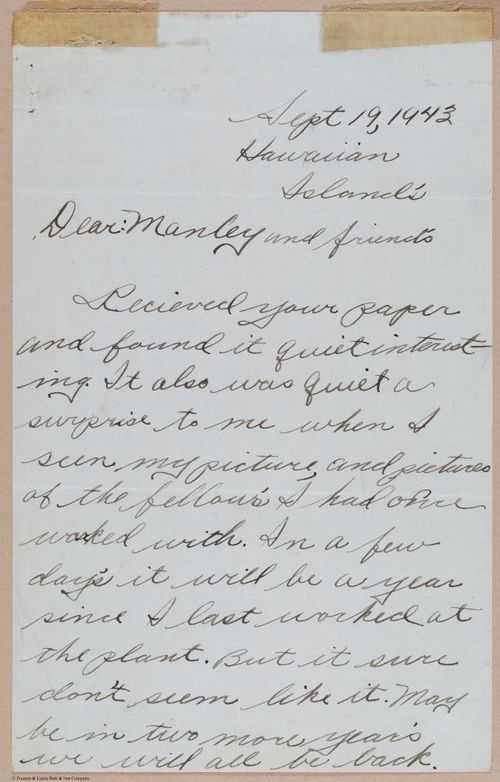 Sept 19, 1943
Hawaiian
Island's
Dear: Manley and friends
Recieved your paper
and found it quiet interest
ing. It also was quiet a
surprise to me when I
seen my picture, and pictures
of the fellow's I had once
worked with. In a few
day's it will be a year
since I last worked at
the plant. But it sure
don't seem like it. May
be in two more year's
we will all be back.
© Peason & Lewis Bolt & Nut Company